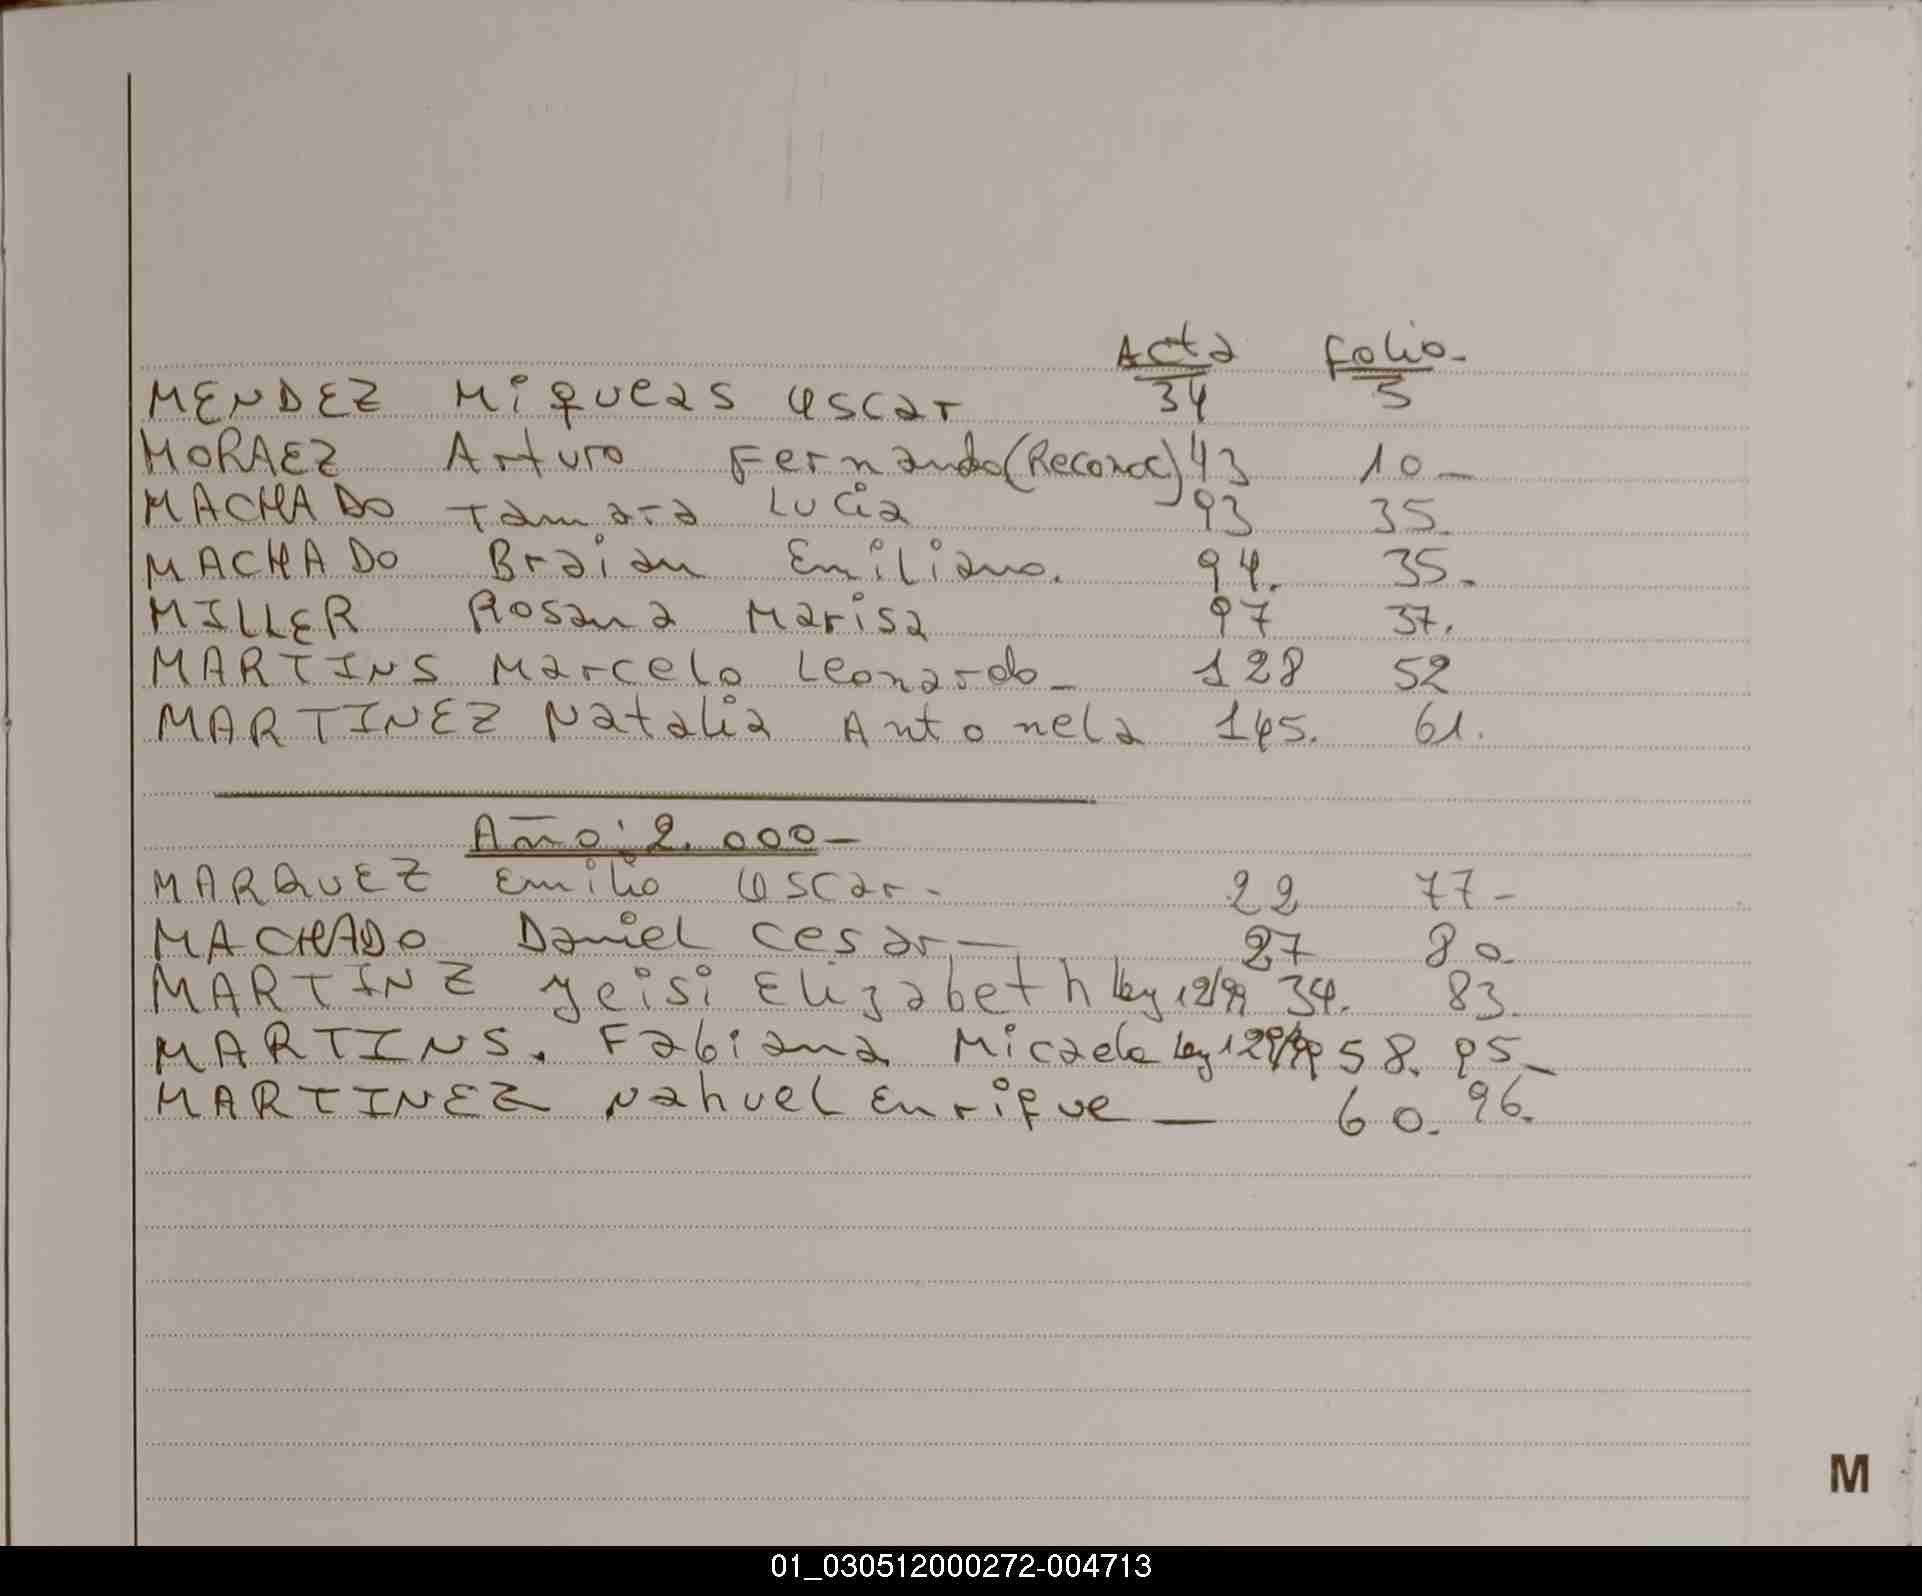 Acta Folio-
MENDEZ Miqueas Oscar 34 5
MORAEZ Arturo Fernando (Reconoc) 43 10-
MACHADO Tamara Lucia 93 35.
MACHADO Braian Emiliano. 94. 35.
MILLER Rosana Marisa 97 37.
MARTINS Marcelo Leonardo- 128 52
MARTINEZ Natalia Antonela 145. 61.
Año: 2.000-
MARQUEZ Emilio Oscar- 22 77-
MACHADO Daniel Cesar- 27 80.
MARTINZ Yeisi Elizabeth ley 12/99 34. 83.
MARTINS. Fabiana Micaela ley 58. 95-
MARTINEZ Nahuel Enrique- 60. 96.
M
01_030512000272-004713